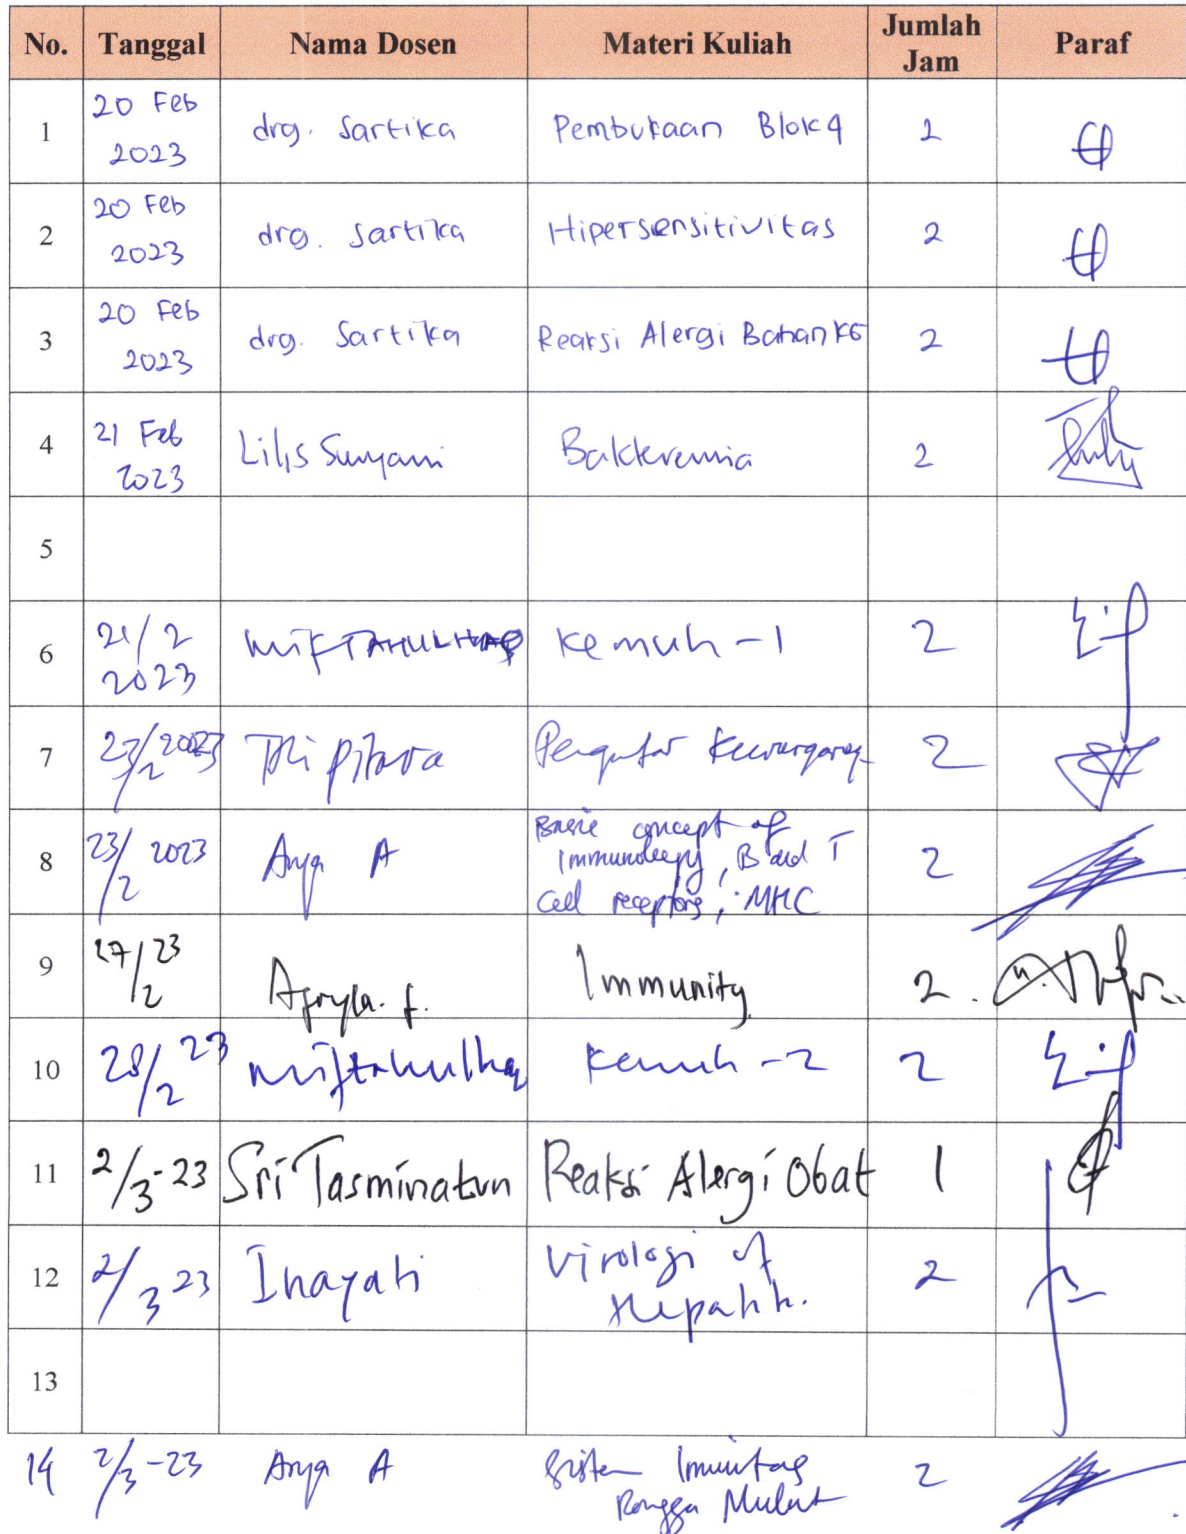 No. Tanggal Nama Dosen Materi Kuliah Jumlah Jam Paraf
1 20 Feb 2023 drg. Sartika Pembukaan Blok 4 2
2 20 Feb 2023 drg. Sartika Hipersensitivitas 2
3 20 Feb 2023 drg. Sartika Reaksi Alergi Bahan KG 2
4 21 Feb 2023 Lilis Suryani Bakteremia 2
5
6 21/2 2023 MIFTAHULHAQ Kemuh-1 2
7 2023 Kewargarag- 2
8 23/2 2023 Arya A Basic concept of Immunology, B and T Cell receptors, MHC 2
9 27/2 23 Immunity 2.
10 28/2 23 Miftahulhaq Kemuh-2 2
11 2/3-23 Sri Tasminatun Reaksi Alergi Obat 1
12 2/3 23 Inayati Virologi of Hepatit. 2
13
14 2/3-23 Arya A Sistem Imunitas Rongga Mulut 2